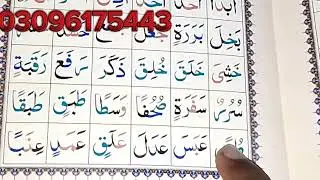 03096175443
أَبَدًا أَحَدٌ
بَخِلَ بَرَرَةٍ جَعَلَ
خَشِيَ خَلَقَ خُلِقَ ذَكَرَ رَفَعَ رَقَبَةٍ
سُرُرٌ سَفَرَةٍ صُحُفًا وَسَطًا طَبَقٍ طَبَقًا
عَبَسَ عَدَلَ عَلَقٍ عَمَدٍ عِنَبًا